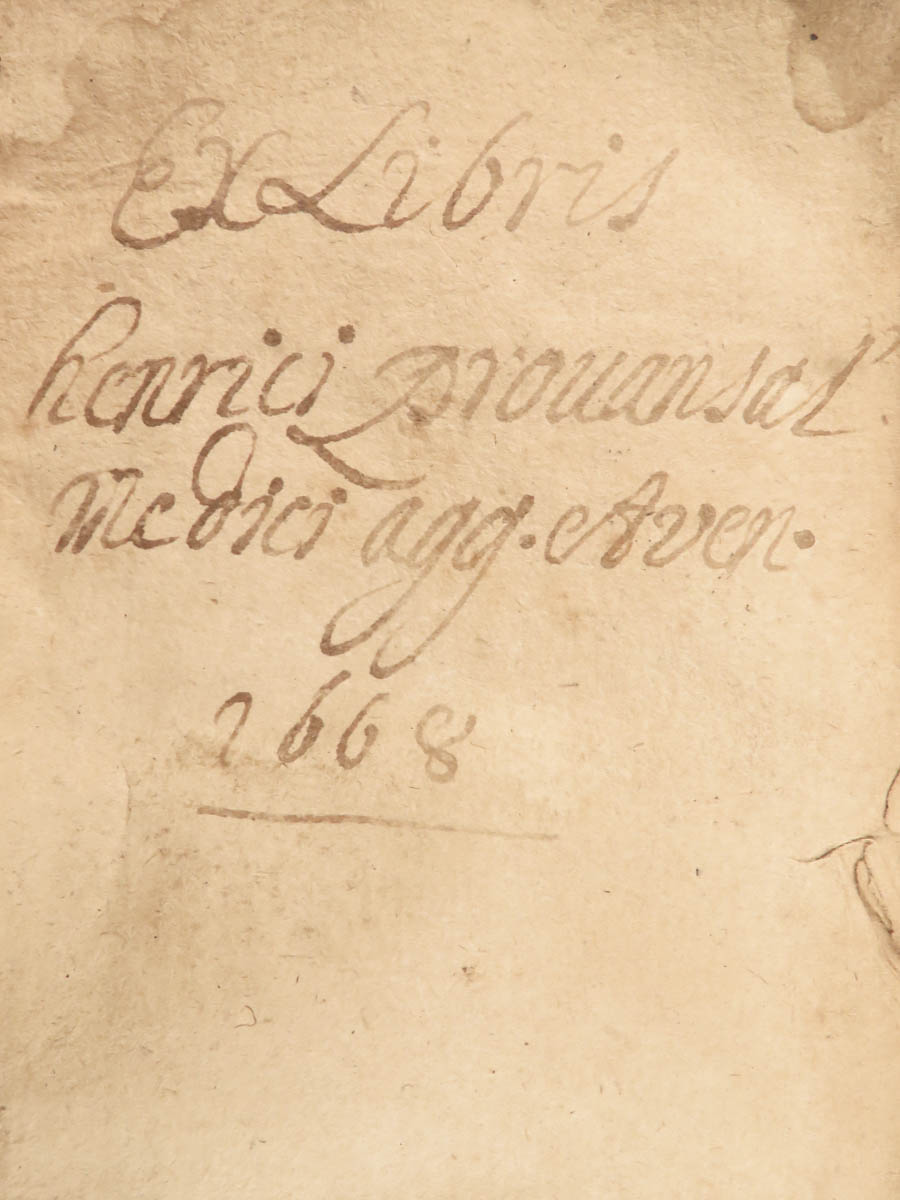 Ex Libris
henrici prouansal
Medici agg. Aven.
1668